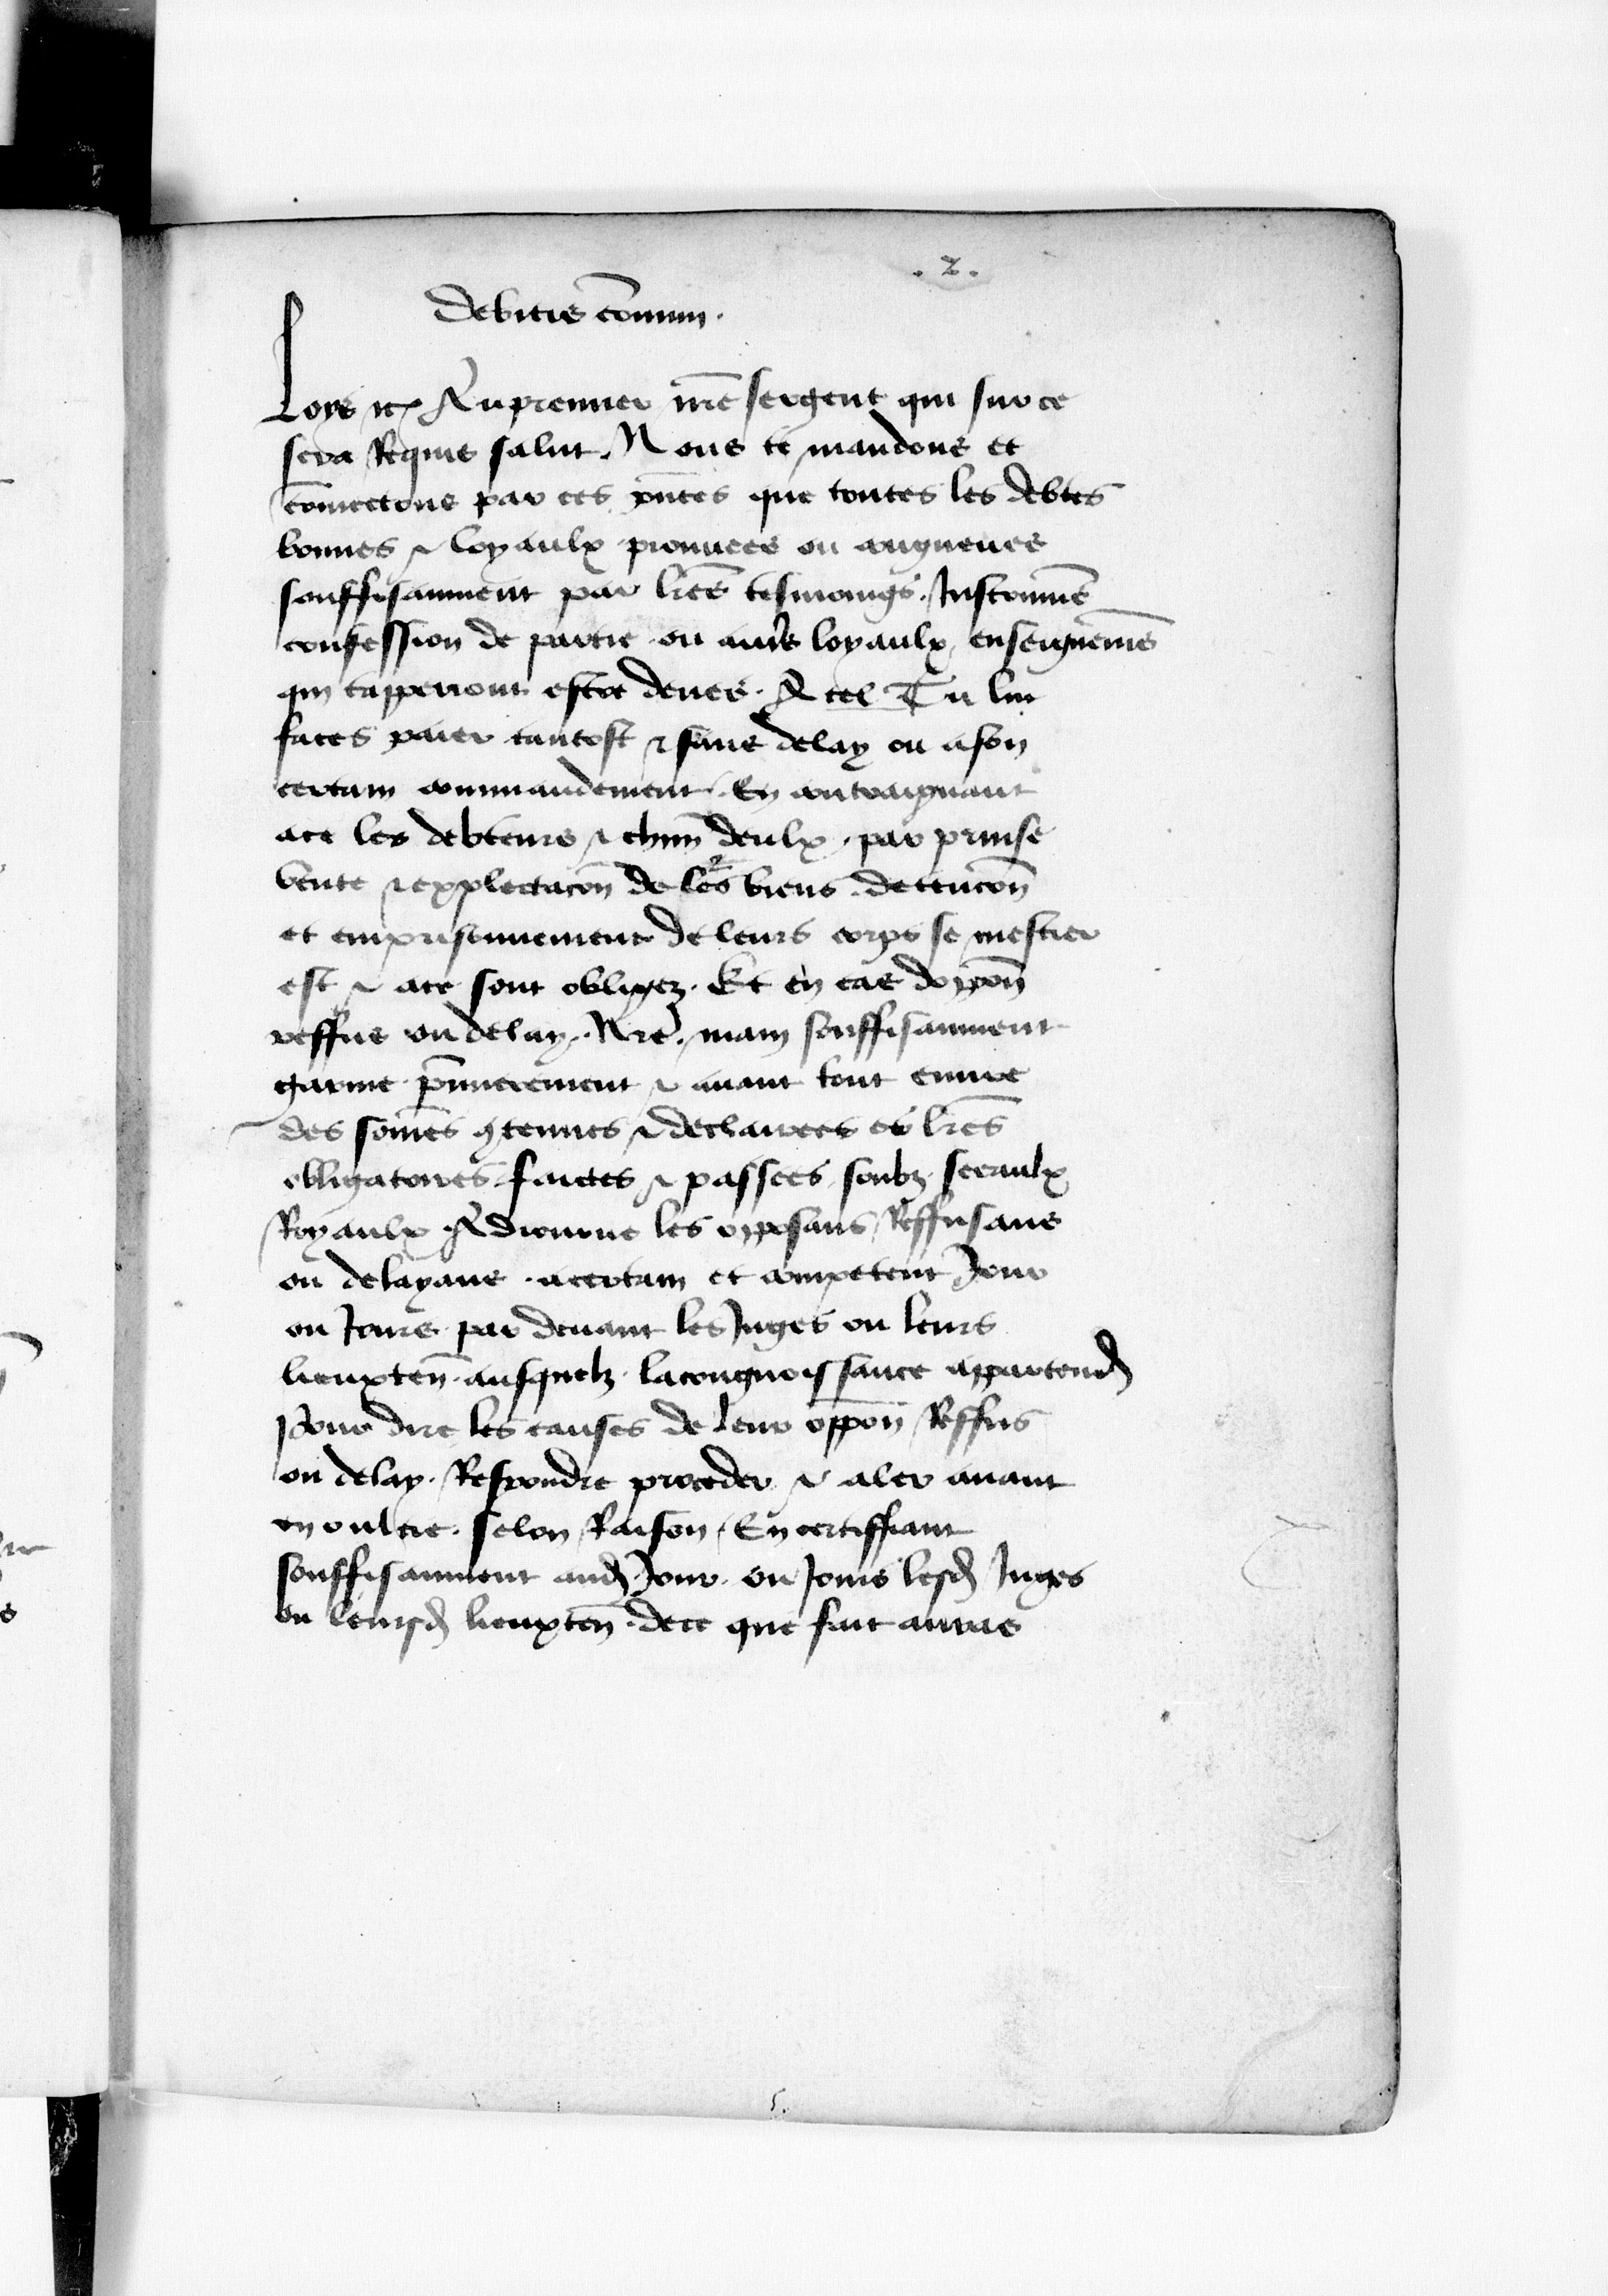 . 2 .
Debitis cōmun .
Loys etc Au premier nrē sergent qui sur ce
sera Requis salut . Nous te mandons et
cōmectons par ces pn̄tes que toutes les debtes
bonnes & loyaulx prouuees ou congneues
souffisamment par lrēs tesmoings . Instrumē
confession de partie ou autrs loyaulx enseignemēs
qui tapperront estre deues . A tel Tu lui
faces paier tantost & sans delay ou a son
certain commandement . En contraignant
a ce les debteurs & chūn deulx . par prinse
vente & explectacōn de leurs biens . detencōn
et emprisonnement de leurs corps se mestier
est & a ce sont obligez . Et en cas doppōn
reffus ou delay . Nrē main souffisamment
garnie p̄mierement & auant tout euure
des sōmes 9tenues & declairees es lrēs
obligatoires faictes & passees soubz seeaulx
Royaulx Adiourne les opposans Reffusans
ou delayans . a certain et competent Jour
ou Jours par deuant les Juges ou leurs
lieuxten̄ . ausquelz la congnoissance appartendra
Pour dire les causes de leur oppōn Reffus
ou delay . Respondre proceder & aler auant
en oultre . selon Raison . En certiffiant
souffisamment aud Jour . ou Jours lesd Juges
ou leursd lieuxten̄ . de ce que fait auras